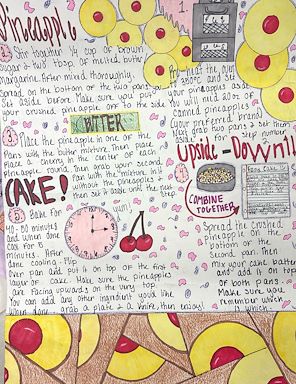 Pineapple
1. Stir together 1/4 cup of brown
sugar & two tbsp. of melted butter
margarine. After mixed thoroughly,
spread on the bottom of the two pans or
set aside before. Make sure you put
your crushed pineapple off to the side
2. Pre-heat the oven
and set
your pineapples aside.
You will need 20oz. of
canned pineapples
your preferred brand.
Next grab two pans & set them
step number
aside
BUTTER
3. Place the pineapple in one of the
pans with the butter mixture. Then place
a cherry in the center of each
pineapple round, then grab your second
pan with the mixture in it
without the pineapples &
set it aside until the next
step
Upside-Down!!
CAKE!
COMBINE
TOGETHER
4. Spread the crushed
pineapple on the
bottom of the
second pan then
mix your cake batter
and add it on top
of both pans.
Make sure you
remember which
is which.
5. Bake for
40-50 minutes
and when done
cool for 5
minutes. After
done cooling flip
over pan and put it on top of the first
layer of cake. Make sure the pineapples
are facing upwards on the very top.
You can add any other ingredients you'd like
when done, grab a plate & a knife, then enjoy!
yum!